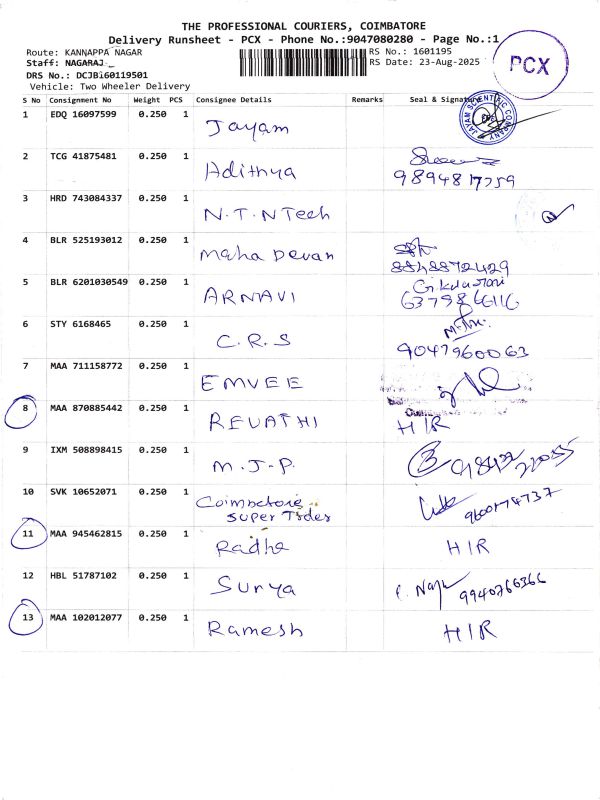 THE PROFESSIONAL COURIERS, COIMBATORE
Delivery Runsheet - PCX - Phone No.:9047080280 - Page No.:1
Route: KANNAPPA NAGAR RS No.: 1601195
Staff: NAGARAJ RS Date: 23-Aug-2025
DRS No.: DCJB160119501
Vehicle: Two Wheeler Delivery
PCX
S No Consignment No Weight PCS Consignee Details Remarks Seal & Signature
1 EDQ 16097599 0.250 1 Jayam
2 TCG 41875481 0.250 1 Adithya
3 HRD 743084337 0.250 1 N.T.N Tech
4 BLR 525193012 0.250 1 Maha Devan 8848872429
5 BLR 6201030549 0.250 1 ARNAVI
6 STY 6168465 0.250 1 C.R.S 9047960063
7 MAA 711158772 0.250 1 EMVEE
8 MAA 870885442 0.250 1 REVATHI HIR
9 IXM 508898415 0.250 1 M.J.P.
10 SVK 10652071 0.250 1 Coimbatore
Super Trder 9600174737
11 MAA 945462815 0.250 1 Radha HIR
12 HBL 51787102 0.250 1 Surya 9940766366
13 MAA 102012077 0.250 1 Ramesh HIR